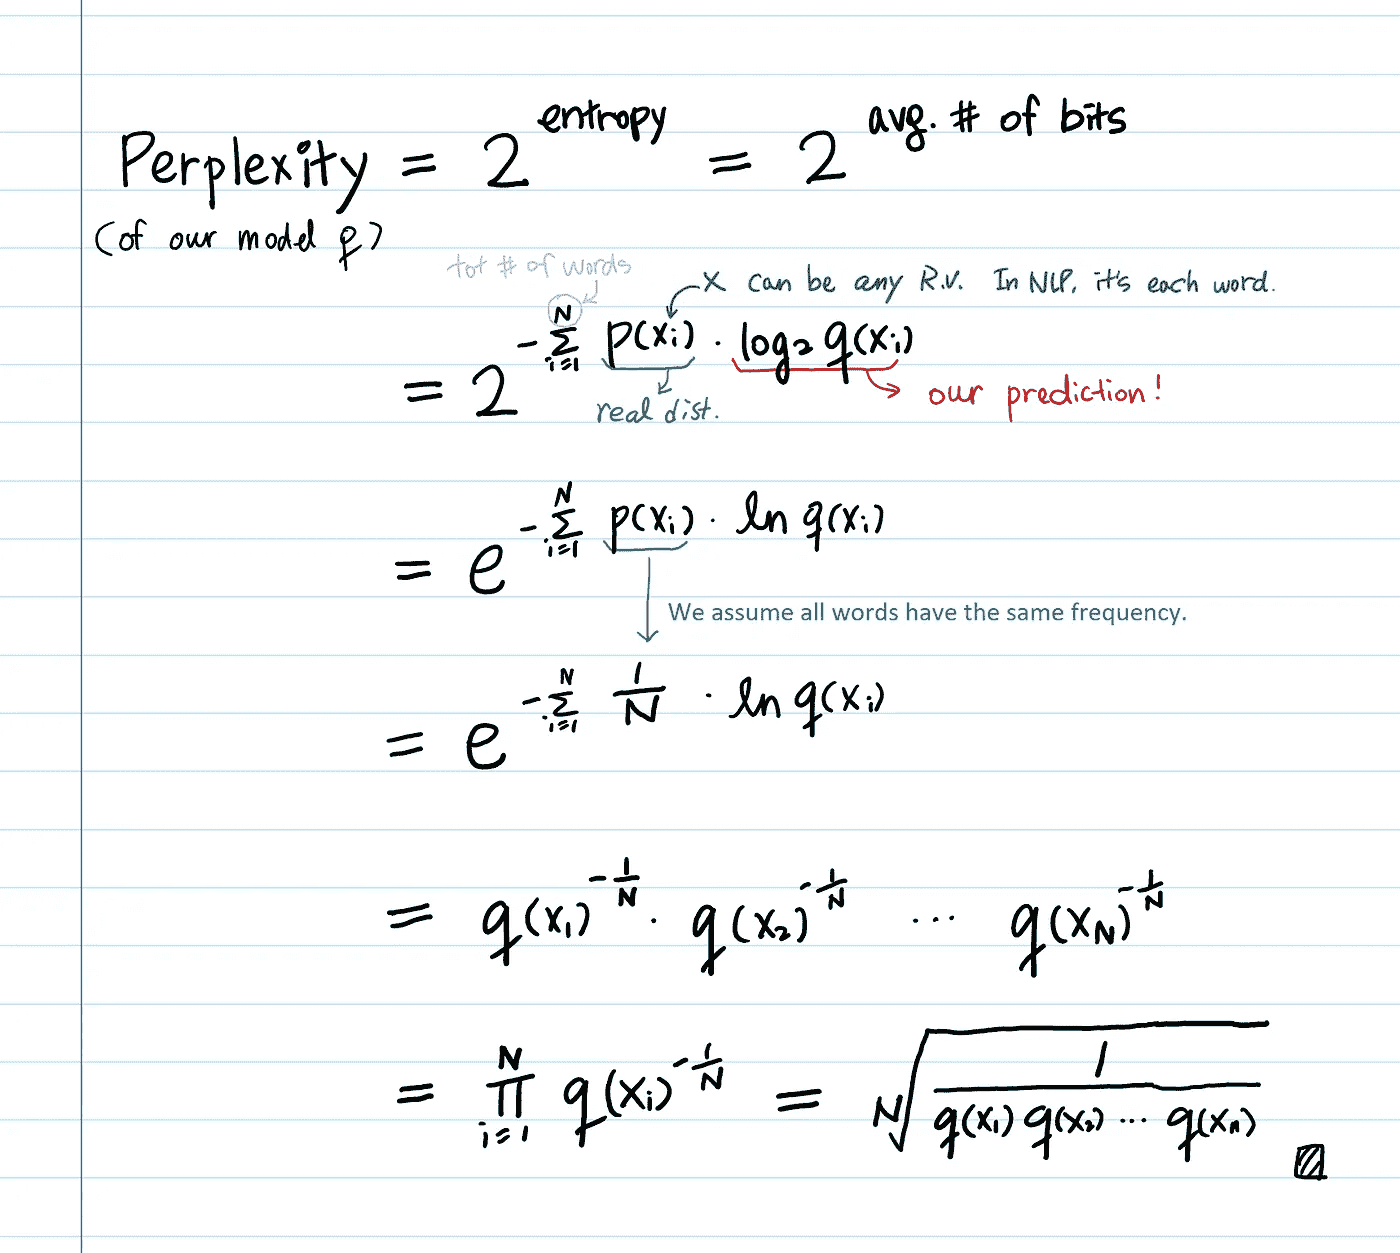 Perplexity = 2^entropy = 2^avg. # of bits
(of our model q)
tot # of words
x can be any R.V. In NLP, it's each word.
= 2^-∑_{i=1}^{N} p(x_i) · log₂ q(x_i)
real dist.
our prediction!
= e^-∑_{i=1}^{N} p(x_i) · ln q(x_i)
We assume all words have the same frequency.
= e^-∑_{i=1}^{N} 1/N · ln q(x_i)
= q(x₁)^{-1/N} · q(x₂)^{-1/N} ... q(x_N)^{-1/N}
= ∏_{i=1}^{N} q(x_i)^{-1/N} = ᴺ√(1/(q(x₁) q(x₂) ... q(x_n)))